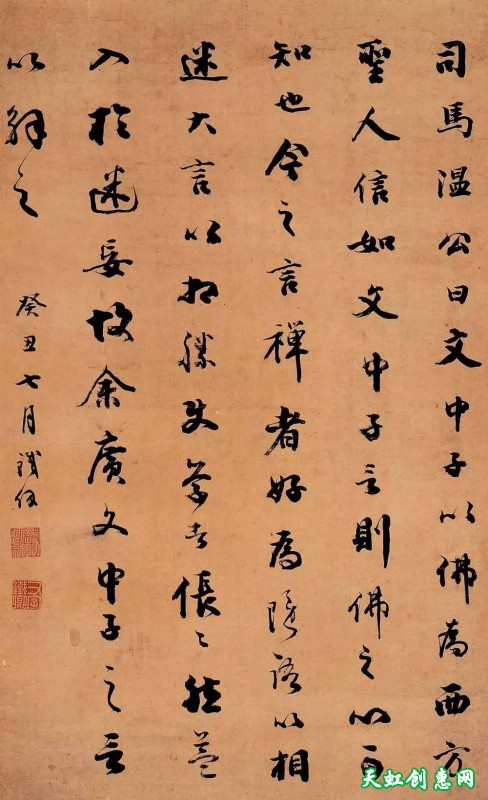 司馬温公曰文中子以佛為西方
聖人信如文中子言則佛之心可
知也今之言禪者好為隱語以相
迷大言以相勝使学者伥〻然益
入於迷妄故余廣文中子之言
以解之
癸丑七月鐵保
天虹创惠网